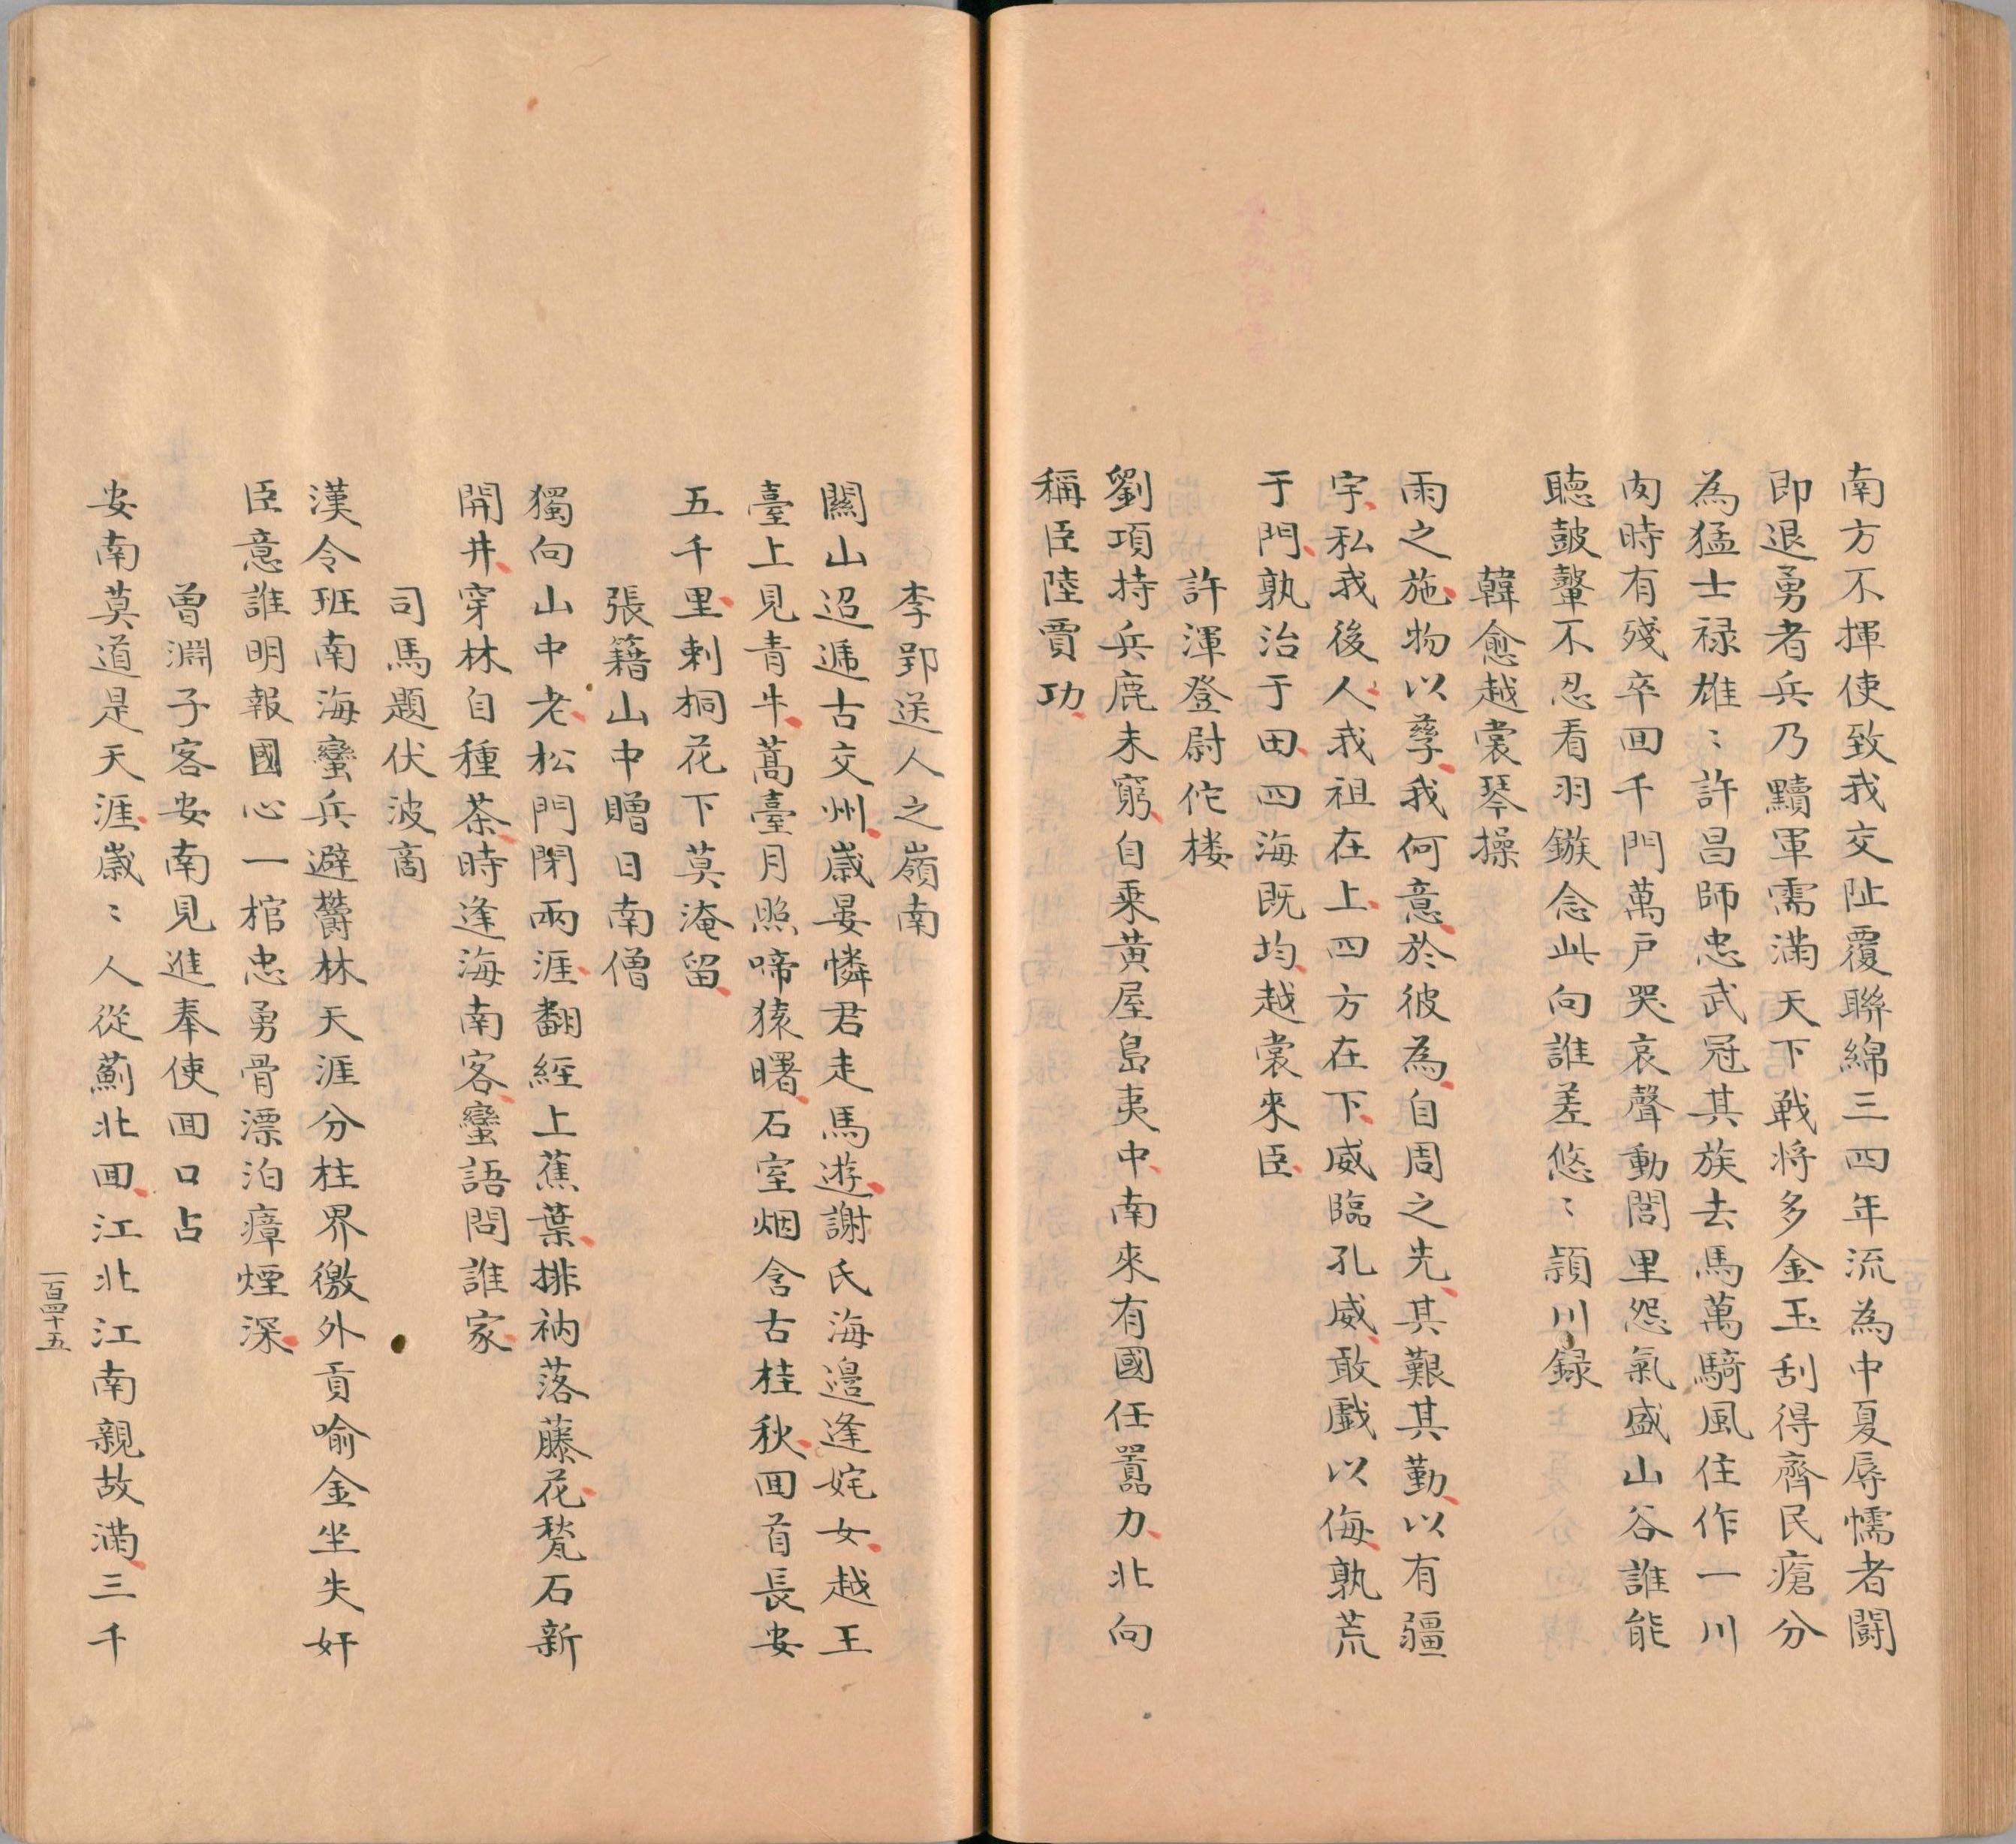 南方不揮使致我交阯覆聯綿三四年流為中夏辱懦者鬪
即退勇者兵乃黷軍需滿天下戦将多金玉刮得齊民瘡分
為猛士禄雄〻許昌師忠武冠其族去馬萬騎風住作一川
肉時有殘卒回千門萬戶哭哀聲動閭里怨氣盛山谷誰能
聽皷鼙不忍看羽鏃念此向誰差悠〻頴川録
韓愈越裳琴操
雨之施物以孳我何意於彼為自周之先其艱其勤以有疆
宇私我後人我祖在上四方在下威臨孔威敢戲以侮孰荒
于門孰治于田四海既均越裳來臣
許渾登尉佗楼
劉項持兵鹿未窮自乗黄屋島夷中南來有國任囂力北向
稱臣陸賈功
李郢送人之嶺南
關山迢遞古交州歳晏憐君走馬遊謝氏海邉逢姹女越王
臺上見青牛蒿臺月照啼猿曙石室烟含古桂秋回首長安
五千里刺桐花下莫淹留
張籍山中贈日南僧
獨向山中老松門閉兩涯翻經上蕉葉排衲落藤花甃石新
開井穿林自種茶時逢海南客蠻語問誰家
司馬題伏波啇
漢令班南海蠻兵避欝林天涯分柱界徼外貢喻金坐失奸
臣意誰明報國心一棺忠勇骨漂泊瘴煙深
曽淵子客安南見進奉使回口占
安南莫道是天涯歳〻人從薊北回江北江南親故滿三千
一百四十五